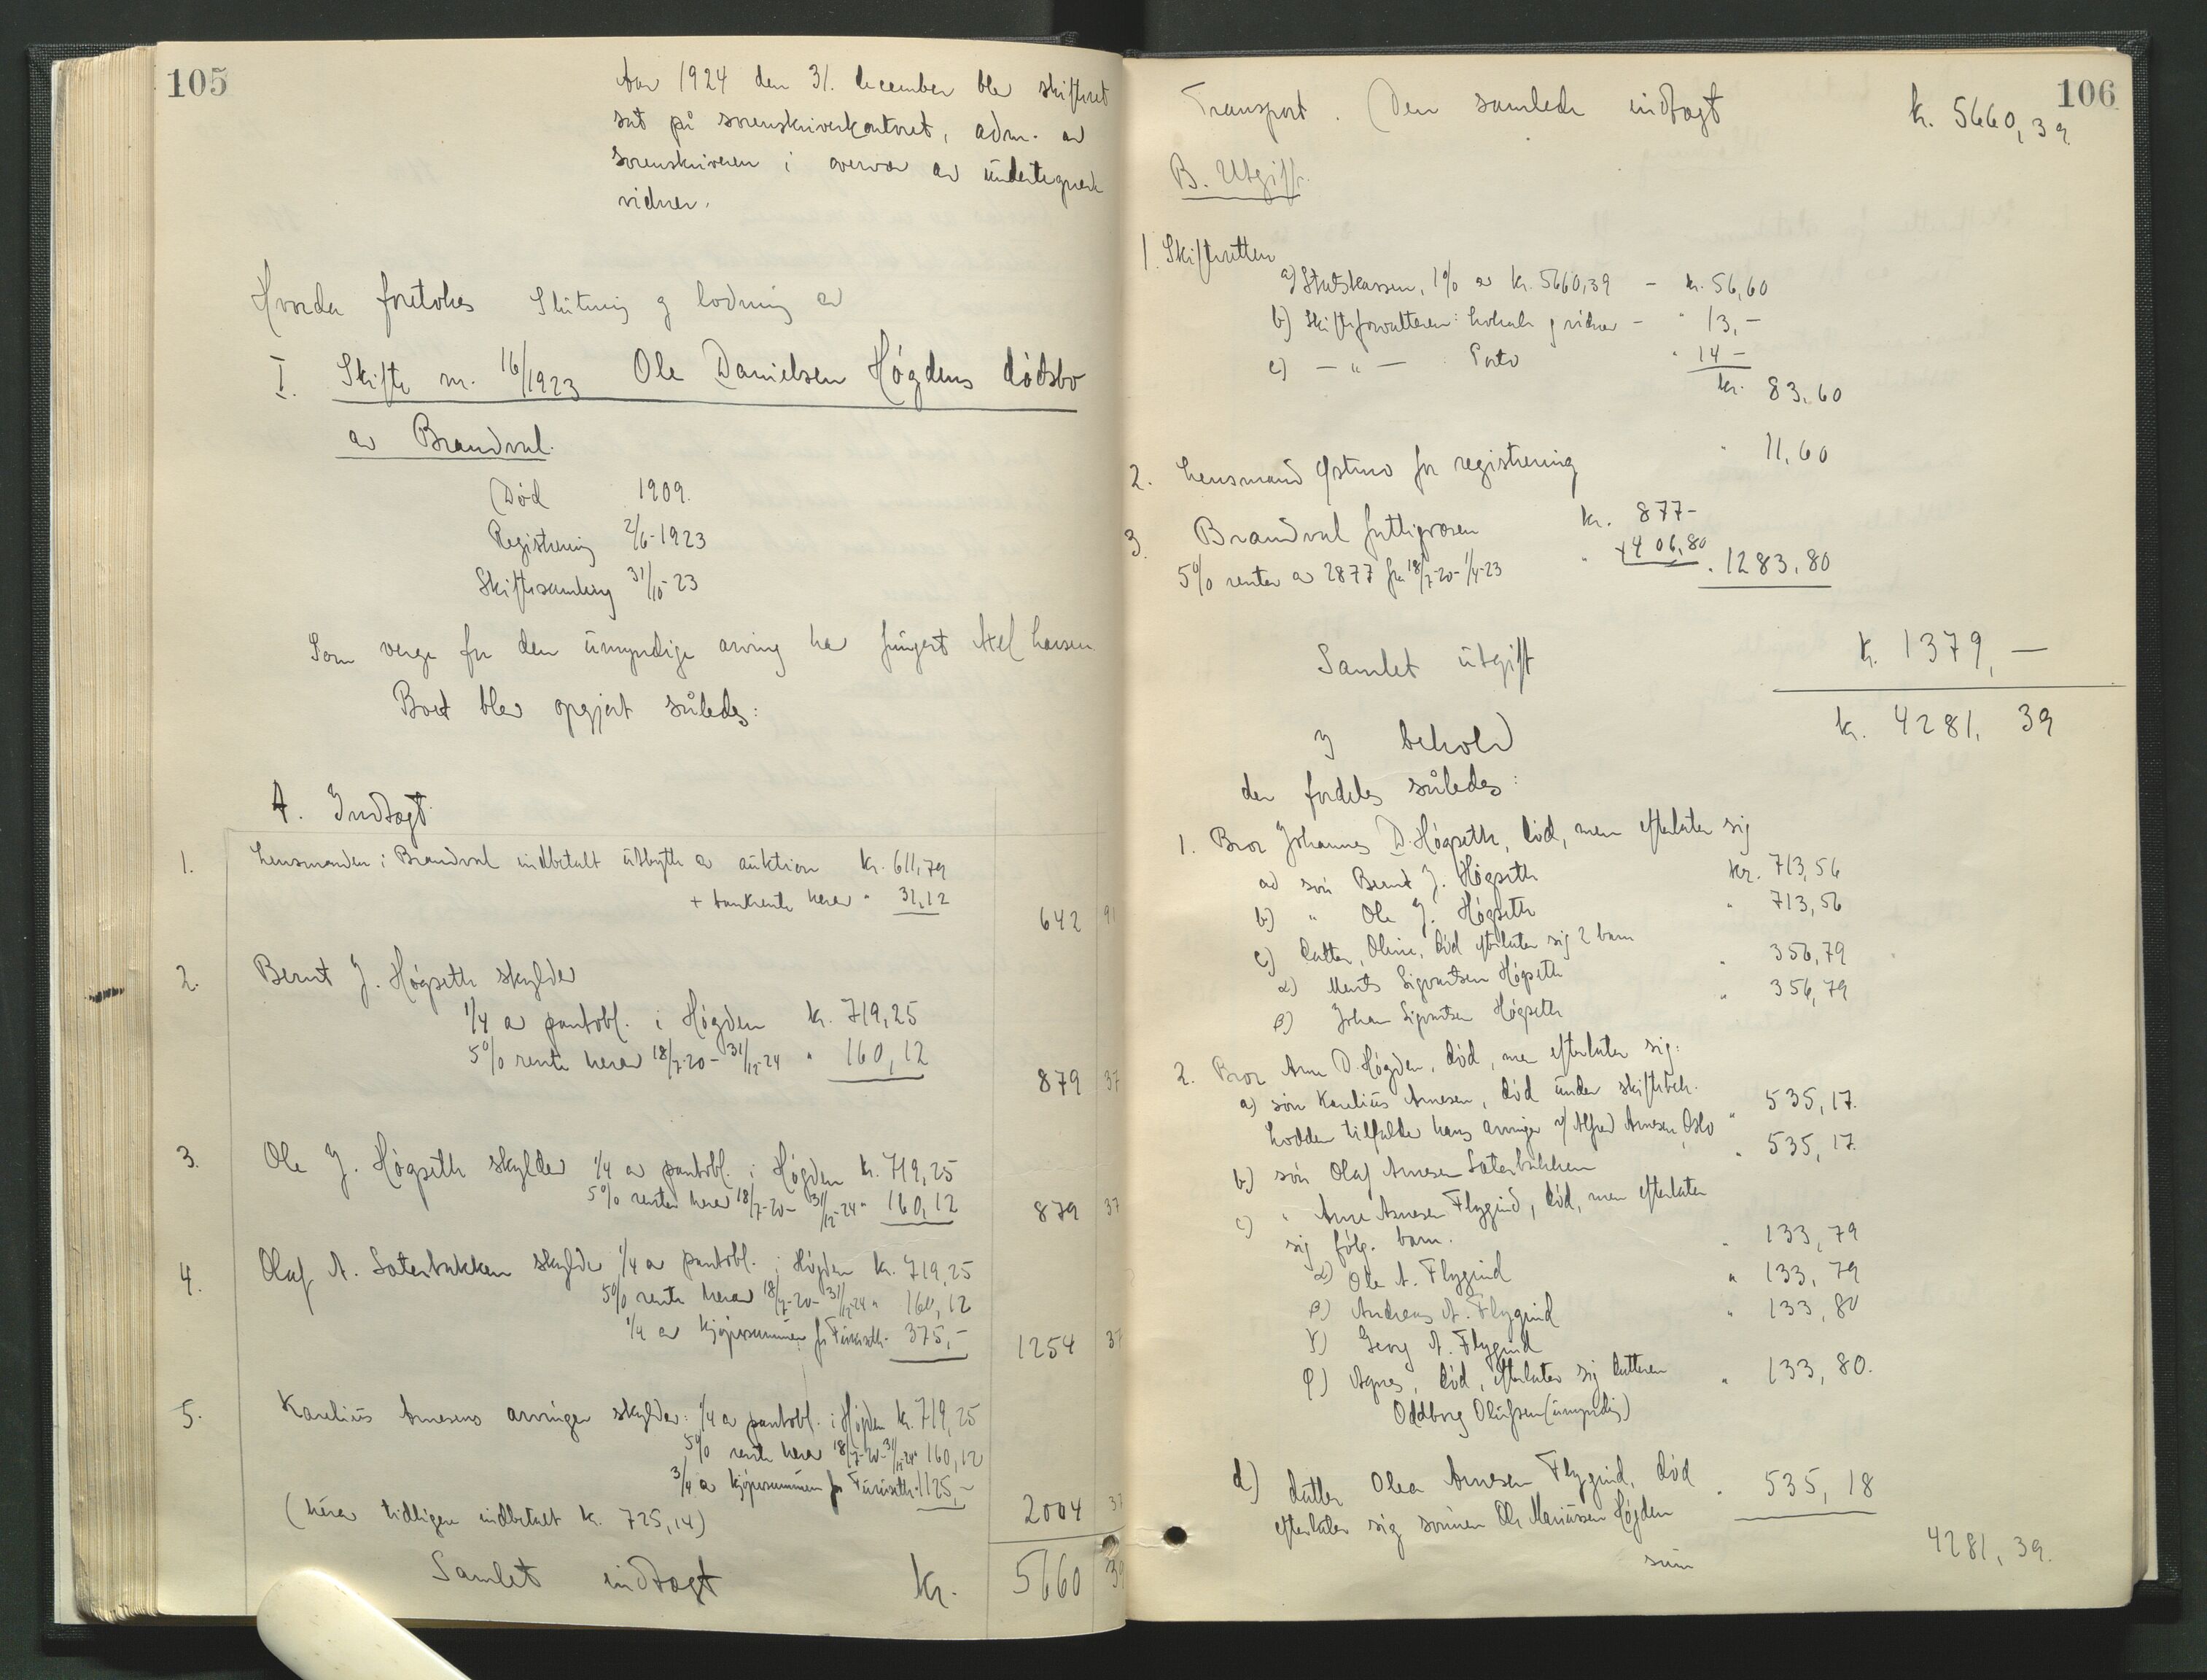 105
Aar 1924 den 31. december blev skifteret
sat på sorenskriverkontoret, adm. av
sorenskriveren i overvær av undertegnede
vidner.
Hvorda foretokes Slutning og lodning av
I. Skifte nr. 16/1923 Ole Danielsen Högdens dödsbo
av Brandval.
Död 1909.
Registrering 2/6-1923
Skiftesamling 31/10-23
Som verge for den umyndige arving har fungert Axel Larsen
Boet blev opgjort således:
A. Indtægt
1. Lensmanden i Brandval indbetalt utbytte av auktion kr. 611,79
+ bankrente herav " 31,12
642 91
2. Bernt J. Högseth skylder
1/4 av pantobl. i Högden kr. 719,25
5% rente herav 18/7-20 - 31/12-24 " 160,12
879 37
3. Ole J. Högseth skylder 1/4 av pantobl. i Högden kr. 719,25
5% renter herav 18/7-20 - 31/12-24 " 160,12
879 37
4. Olaf A. Sæterbakken skylder 1/4 av pantobl. i Högden kr. 719,25
5% rente herav 18/7-20 - 31/12-24 " 160,12
1/4 av kjöpesummen for Furuseth " 375,-
1254 37
5. Karelius Arnesens arvinger skylder: 1/4 av pantobl. i Högden kr. 719,25
5% rente herav 18/7-20 - 31/12-24 " 160,12
3/4 av kjöpesummen for Furuseth " 1125,-
(herav tidligere indbetalt kr. 725,14)
2004 37
Samlet indtægt kr. 5660 39
106
Transport. Den samlede indtægt kr. 5660,39
B. Utgift.
1. Skifteretten
a) Statskassen, 1% av kr. 5660,39 - kr. 56,60
b) Skifteforvalteren: lokale og vidner - " 13,-
c) - " - Porto " 14 -
kr. 83,60
2. Lensmand Østmo for registrering " 11,60
3. Brandval fattigvæsen kr. 877-
5% renter av 2877 fra 18/7-20 - 1/4-23 " + 406,80 " 1283,80
Samlet utgift kr. 1379,-
I behold kr. 4281,39
der fordeles således:
1. Bror Johannes D. Högseth, död, men efterlater sig
a) sön Bernt J. Högseth kr. 713,56
b) " Ole J. Högseth " 713,56
c) datter, Oline, död efterlater sig 2 barn
α) Sigvartsen Högseth " 356,79
β) Johan Sigvartsen Högseth " 356,79
2. Bror Arne D. Högden, död, men efterlater sig:
a) sön Karelius Arnesen, död under skiftebeh.
Lodden tilfalder hans arvinger v/ Alfred Arnesen, Oslo " 535,17.
b) sön Olaf Arnesen Sæterbakken " 535,17.
c) " Arne Arnesen Flygind, död, men efterlater
sig fölg. barn.
α) Ole A. Flygind " 133,79
β) Andreas A. Flygind " 133,79
γ) Georg A. Flygind " 133,80
φ) Agnes, död, efterlater sig datteren
Oddborg Olufsen (umyndig) " 133,80.
d) datter Olea Arnesen Flygind, död
efterlater sig sönnen Ole Mariussen Högden " 535,18
sum 4281,39.